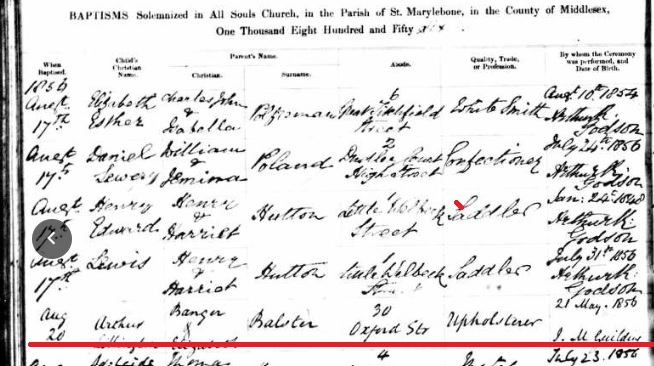 BAPTISMS Solemnized in All Souls Church, in the Parish of St. Marylebone, in the County of Middlesex,
One Thousand Eight Hundred and Fifty six.
When Baptized. Child's Christian Name. Parent's Name. Christian. Surname. Abode. Quality, Trade, or Profession. By whom the Ceremony was performed, and Date of Birth.
1856
6 Augt 10th 1854
Augt Elizabeth Charles John
17th Esther & Isabella Street White Smith Arthur K. Godson
2 July 24th 1856
Augt Daniel William Poland Court Confectioner
17th & Jemima High Street Arthur K. Godson
Jan: 24th
Augt Henry Henry Hutton Little Welbeck Saddler
17th Edward & Harriet Street Arthur K. Godson
1 July 31st 1856
Augt Lewis Henry Hutton Little Welbeck Saddler
17th & Harriet Arthur K. Godson
21 May. 1856
Aug Arthur Banger Balster 30 Upholsterer
20 & Elizabeth Oxford Str
Adelaide Thomas 4 July 23. 1856